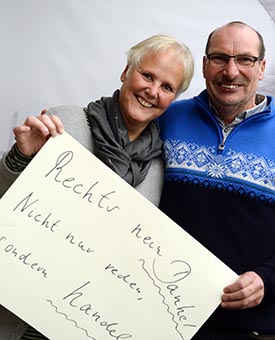 Rechts nein Danke!
Nicht nur reden,
sondern handel